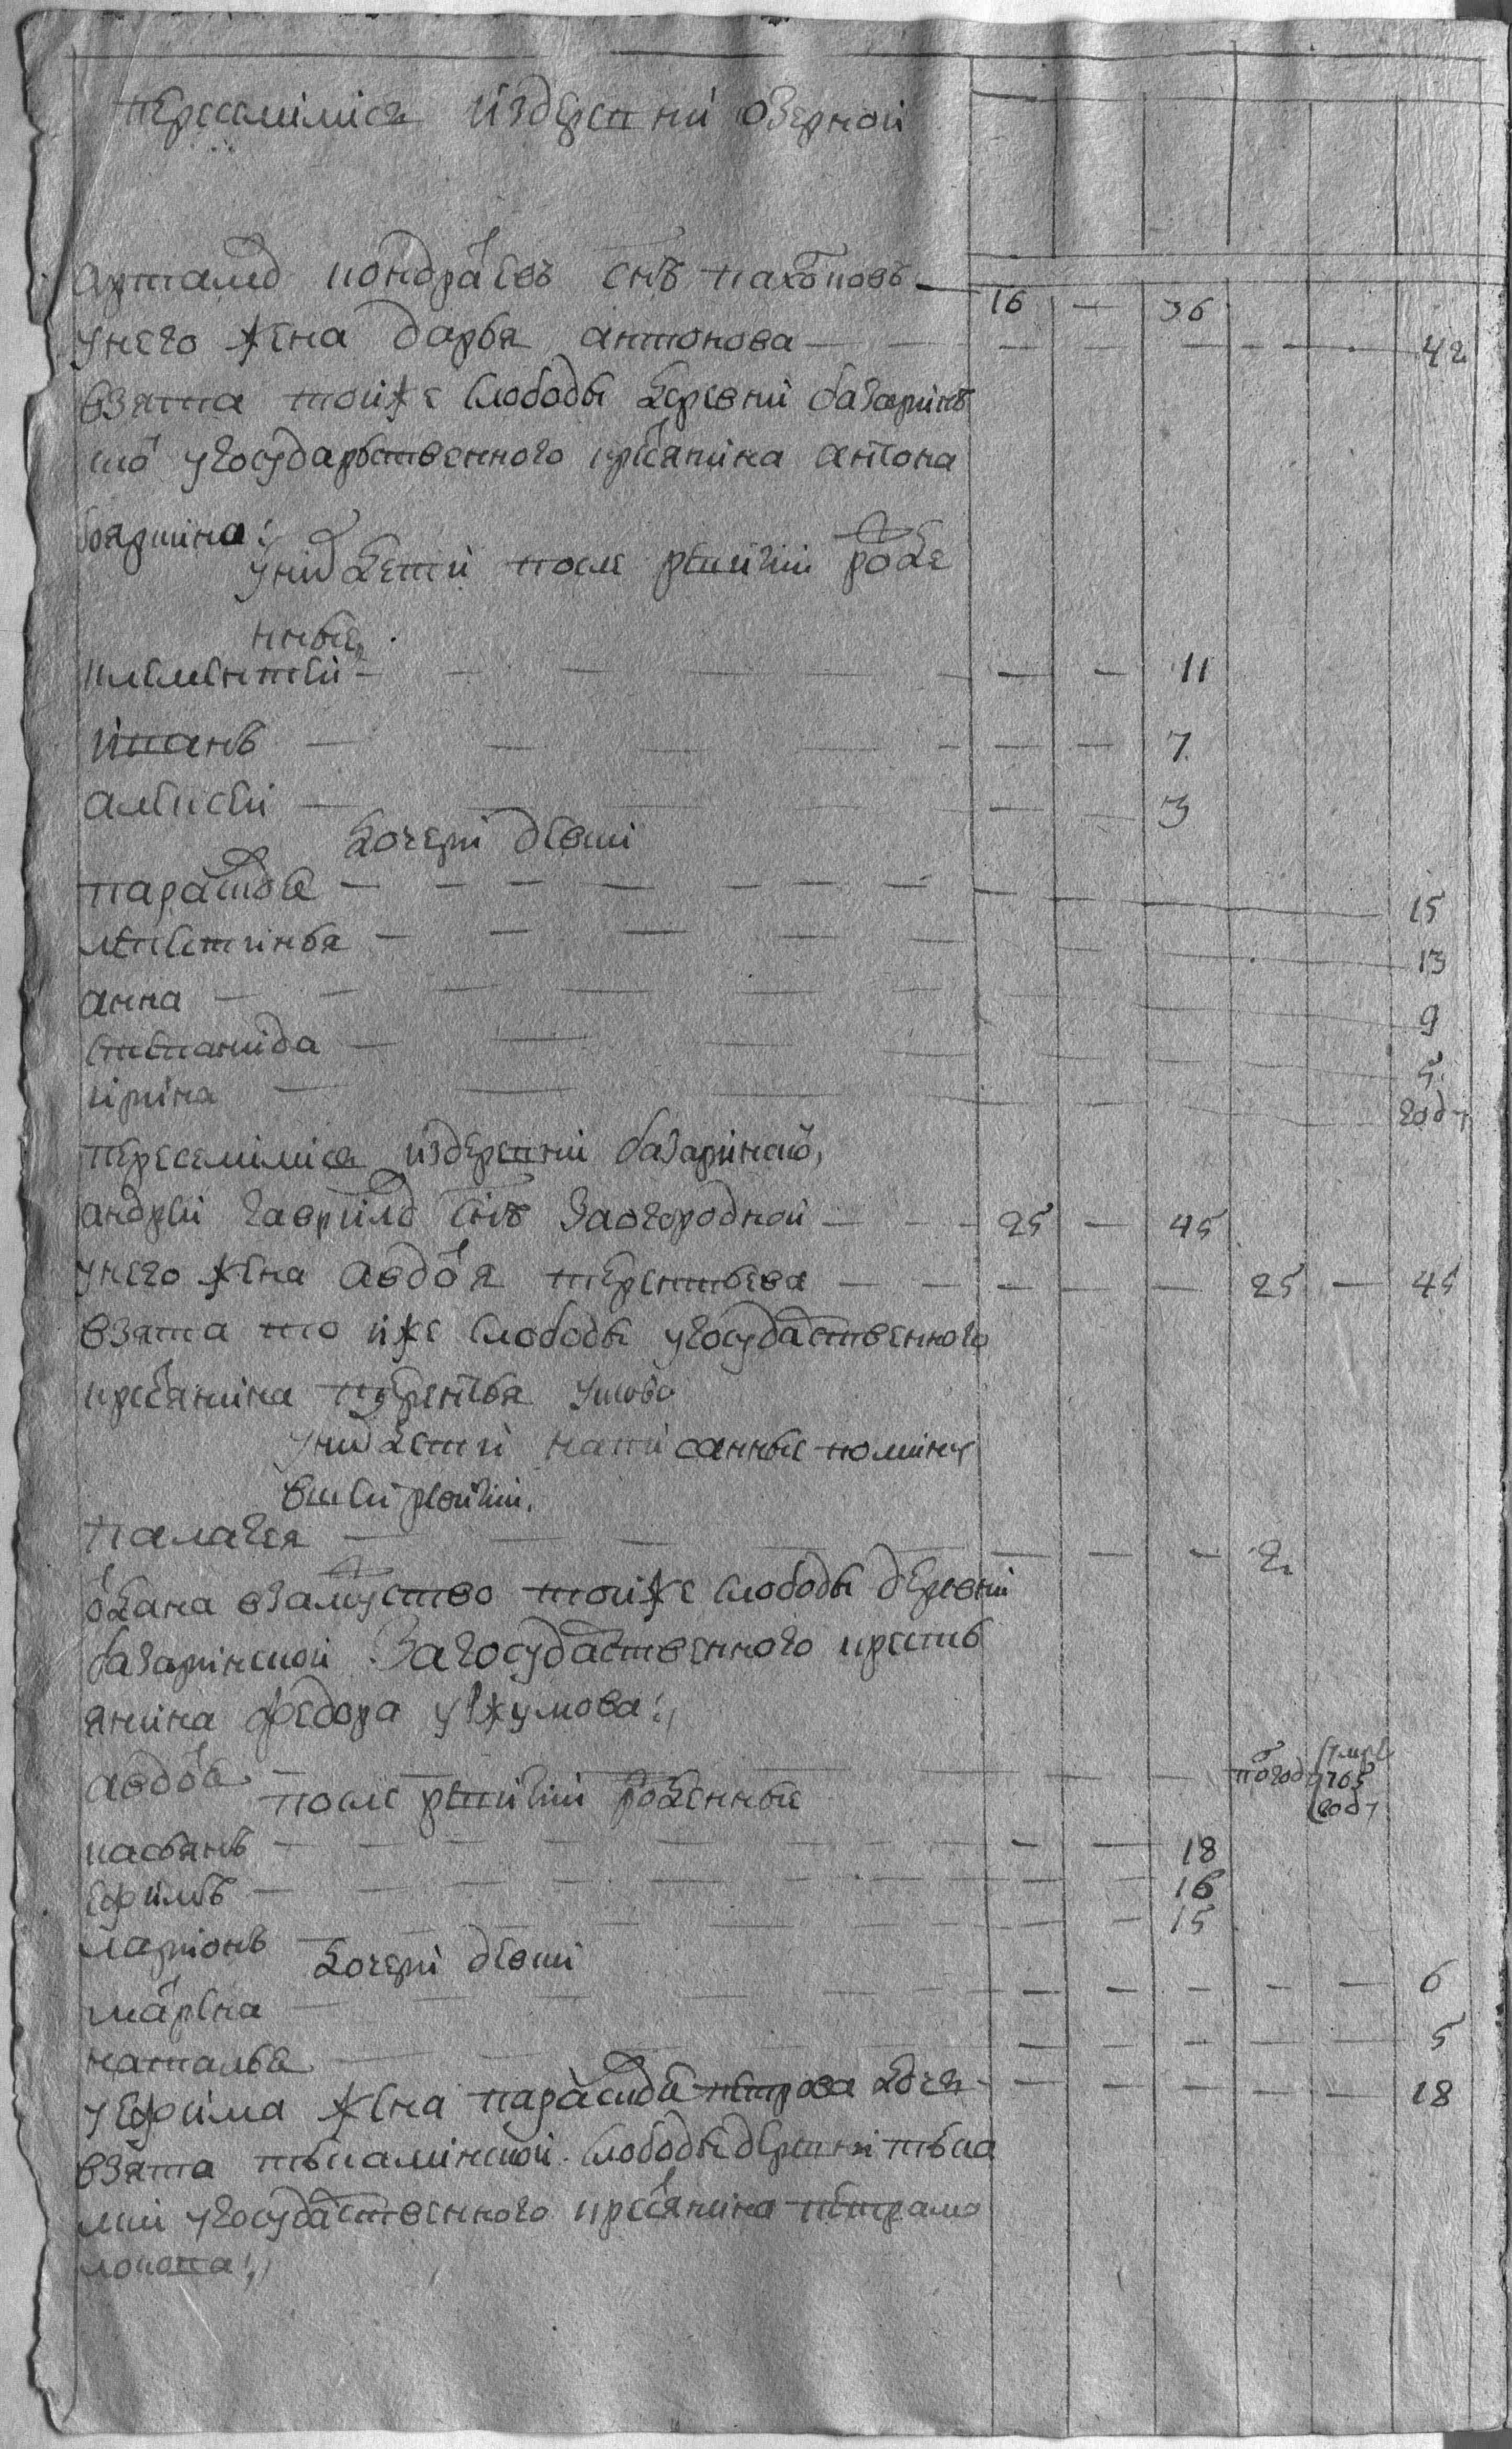 переселилися издеревни озерной
артамо кондратьевъ снъ пахотновъ — 16 — 36
унего жена дарья антонова — 42
взята тойже слободы деревни базаринъ
ско угосударьственного крестянина антона
унихъ дети после ревизии рожде
нные
климентей — 11
иванъ — 7
алексей — 3
дочери девки
парасковя — 15
устинья — 13
анна — 9
степанида — 5
ирина — году
переселилися издеревни базаринско,
андрей гаврило снъ Заогородной — 25 — 45
унего жена авдотя терентьева — 25 — 45
взята то иже слободы угосударственного
крестянина терентья
унихъ дети написанные помину
вшей ревизии.
палагея — 2
одана взамуство тойже слободы деревни
базаринской Загосударственного кресть
янина федора
авдотя — 1763 году
после ревизии рожденные
касьянъ — 18
ефимъ — 16
ларионъ — 15
дочери девки
марена — 6
наталья — 5
уефима жена парасковя петрова дочь — 18
взята тыкалинской слободы деревни тыка
лки угосударственного крестянина петра мо
локова